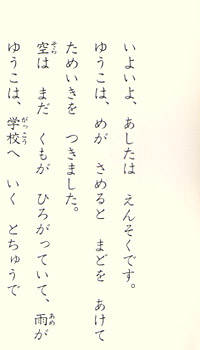 いよいよ、あしたは えんそくです。
ゆうこは、めが さめると まどを あけて
ためいきを つきました。
空は まだ くもが ひろがっていて、雨が
ゆうこは、学校へ いく とちゅうで